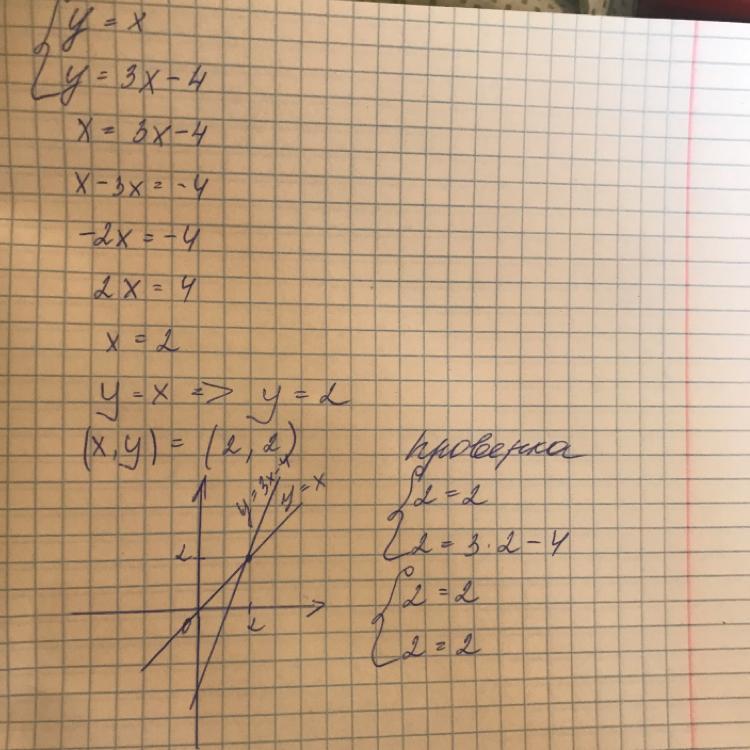 { y = x
y = 3x - 4
x = 3x - 4
x - 3x = -4
-2x = -4
2x = 4
x = 2
y = x => y = 2
(x, y) = (2, 2)
y = 3x - 4
y = x
2
0
2
проверка
{ 2 = 2
2 = 3 · 2 - 4
{ 2 = 2
2 = 2